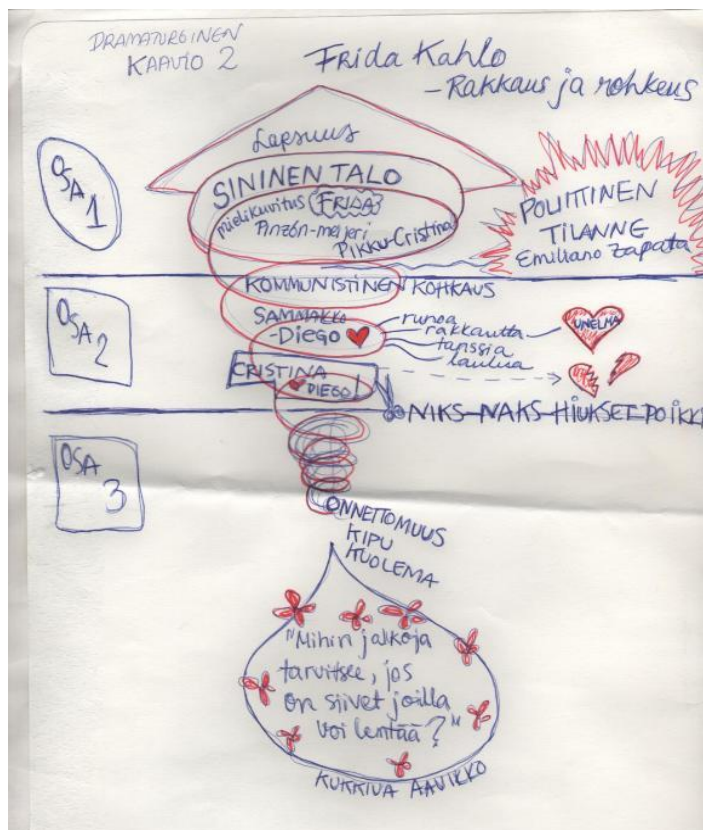 DRAMATURGINEN
KAAVIO 2
Frida Kahlo
- Rakkaus ja rohkeus
OSA 1
Lapsuus
SININEN TALO
mielikuvitus FRIDA
Pinzón-meijeri
Pikku-Cristina
POLIITTINEN
TILANNE
Emiliano Zapata
KOMMUNISTINEN KOHKAUS
OSA 2
SAMMAKKO
-Diego
runoa
rakkautta
tanssia
laulua
UNELMA
CRISTINA
DIEGO
NIKS-NAKS-HIUKSET-POIKKI
OSA 3
ONNETTOMUUS
KIPU
KUOLEMA
"Mihin jalkoja
tarvitsee, jos
on siivet joilla
voi lentää?"
KUKKIVA AAVIKKO